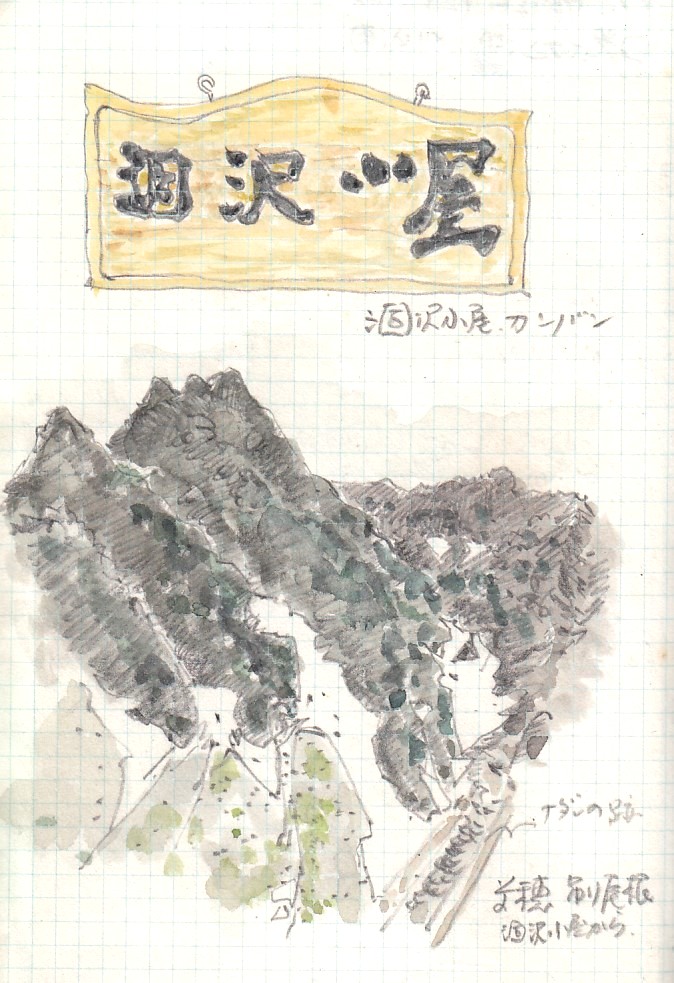 涸沢小屋
涸沢小屋 カンバン
ナダレの跡
前穂 吊り尾根
涸沢小屋から